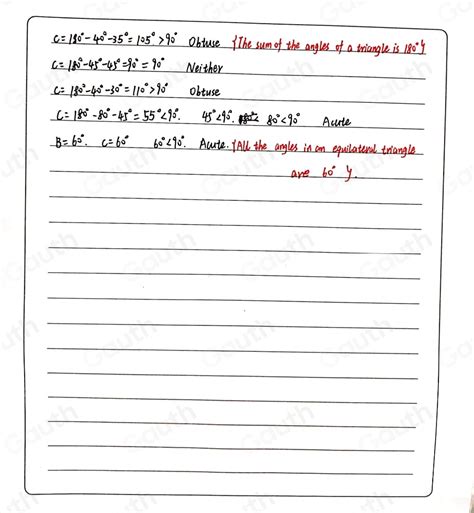 C=180°-40°-35°=105°>90° Obtuse {The sum of the angles of a triangle is 180°}
C=180°-45°-45°=90°=90° Neither
C=180°-40°-30°=110°>90° Obtuse
C=180°-80°-45°=55°<90°. 45°<90°. 80°<90° Acute
B=60°. C=60° 60°<90°. Acute. {All the angles in an equilateral triangle
are 60°}.